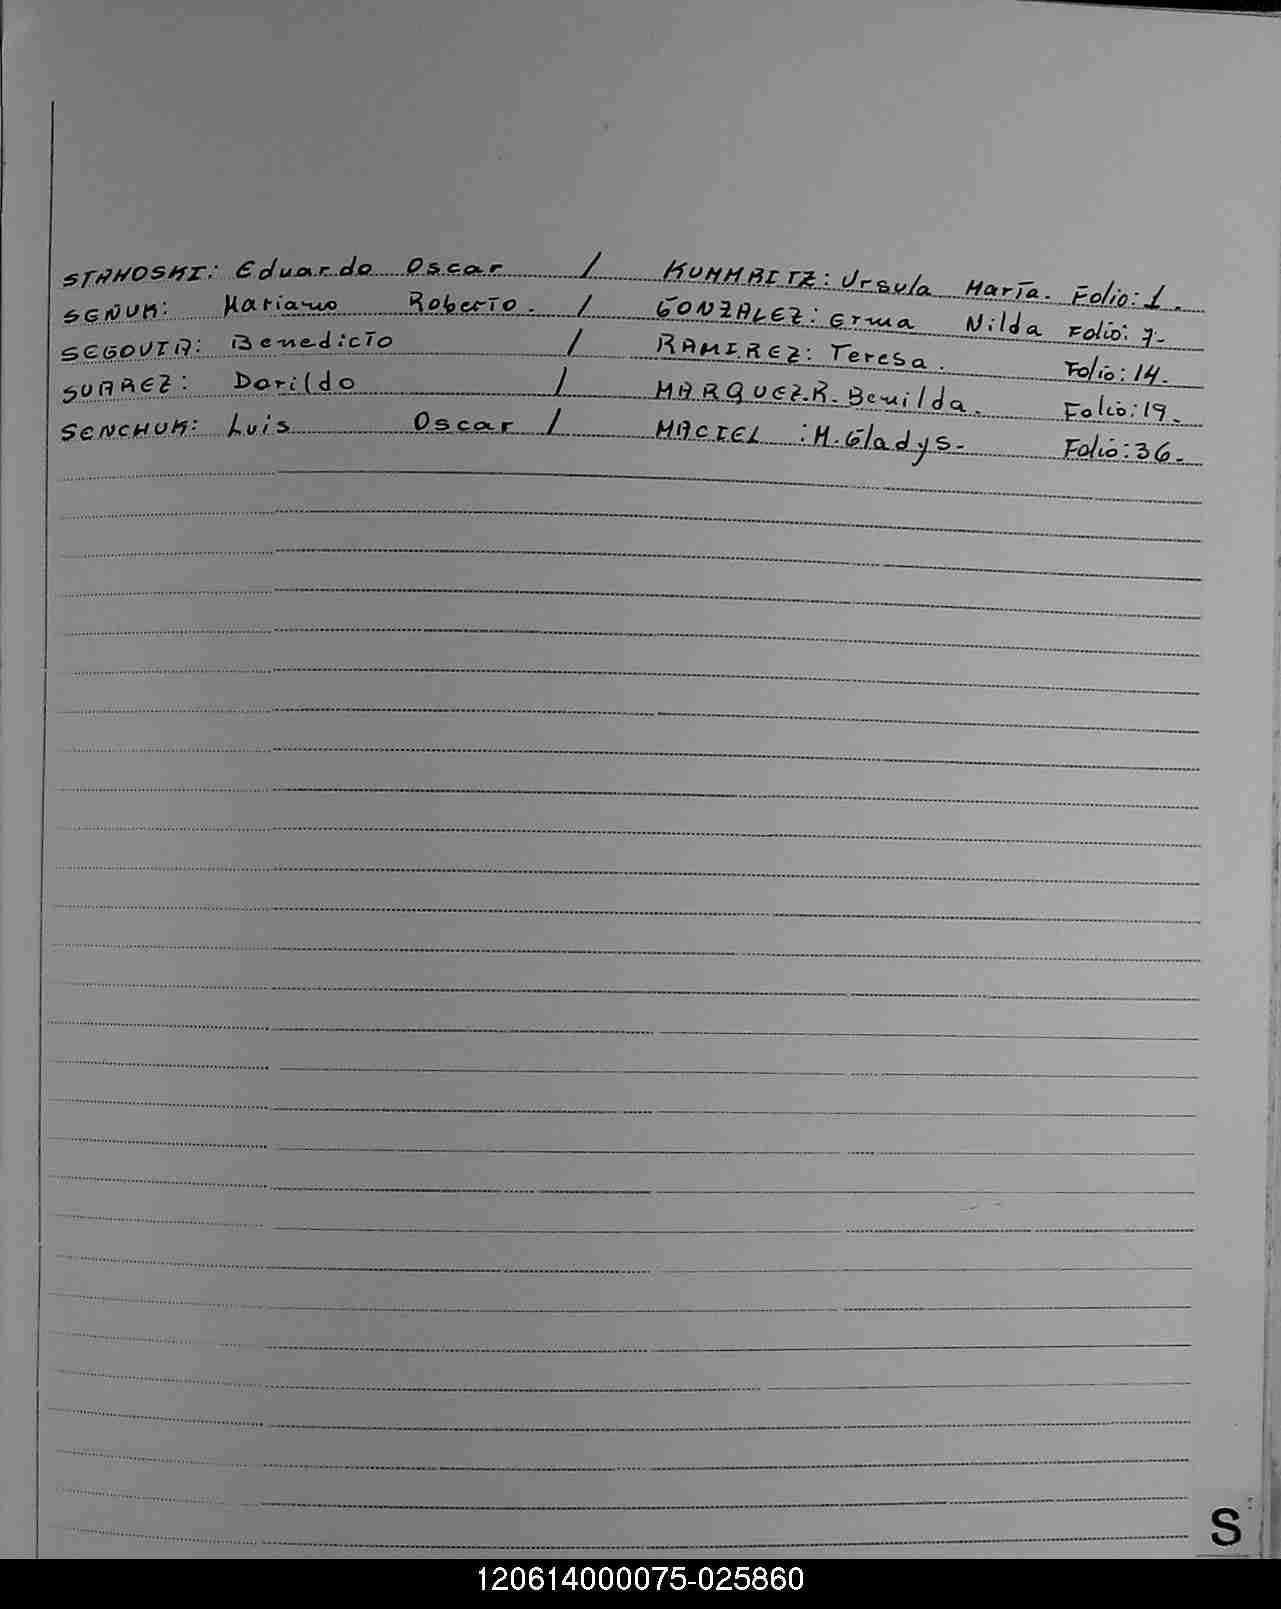 STANOSKI: Eduardo Oscar / KUMMRITZ: Ursula María. Folio: 1.
SEÑUK: Mariano Roberto. / GONZALEZ: Erma Nilda Folio: 7-
SEGOVIA: Benedicto / RAMIREZ: Teresa. Folio: 14.
SUAREZ: Dorildo / MARQUEZ.R. Benilda. Folio: 19.
SENCHUK: Luis Oscar / MACIEL : M. Gladys- Folio: 36-
S
120614000075-025860